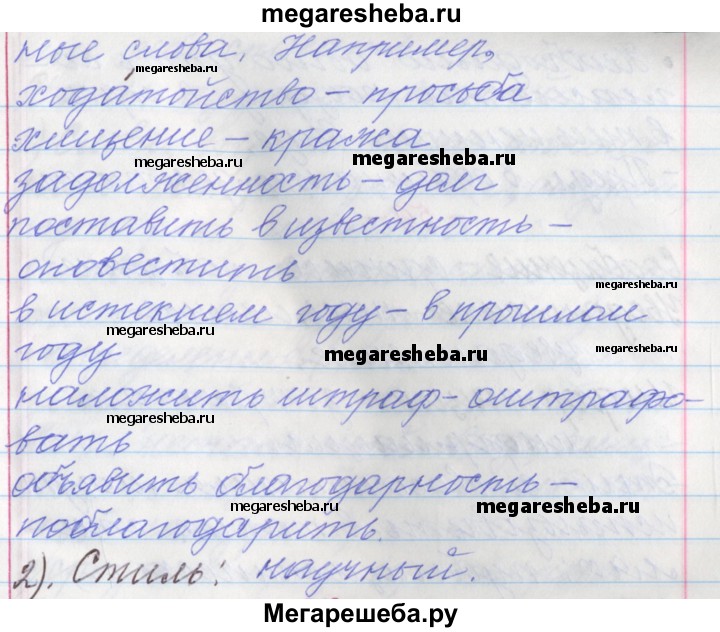 megaresheba.ru
ные слова. Например,
megaresheba.ru
megaresheba.ru
ходатойство – просьба
хищение – кража
megaresheba.ru
megaresheba.ru
задолженность – долг
поставить в известность –
оповестить
megaresheba.ru
в истекшем году – в прошлом
megaresheba.ru
году
megaresheba.ru
megaresheba.ru
наложить штраф – оштрафо-
megaresheba.ru
вать
объявить благодарность –
megaresheba.ru
megaresheba.ru
поблагодарить.
2). Стиль: научный.
Мегарешеба.ру